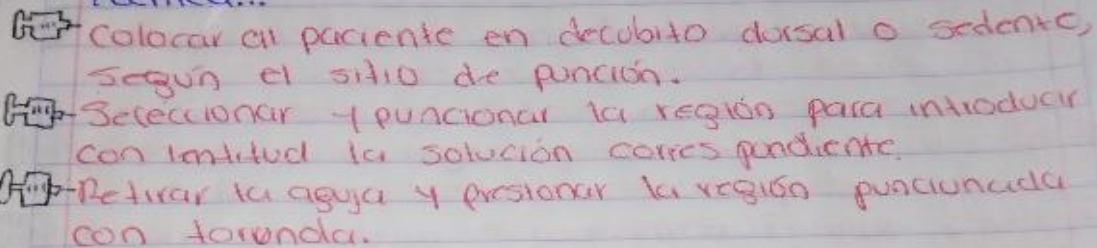 Colocar al paciente en decubito dorsal o sedente,
según el sitio de punción.
Seleccionar y puncionar la región para introducir
con lentitud la solución correspondiente.
Retirar la aguja y presionar la región puncionada
con torunda.